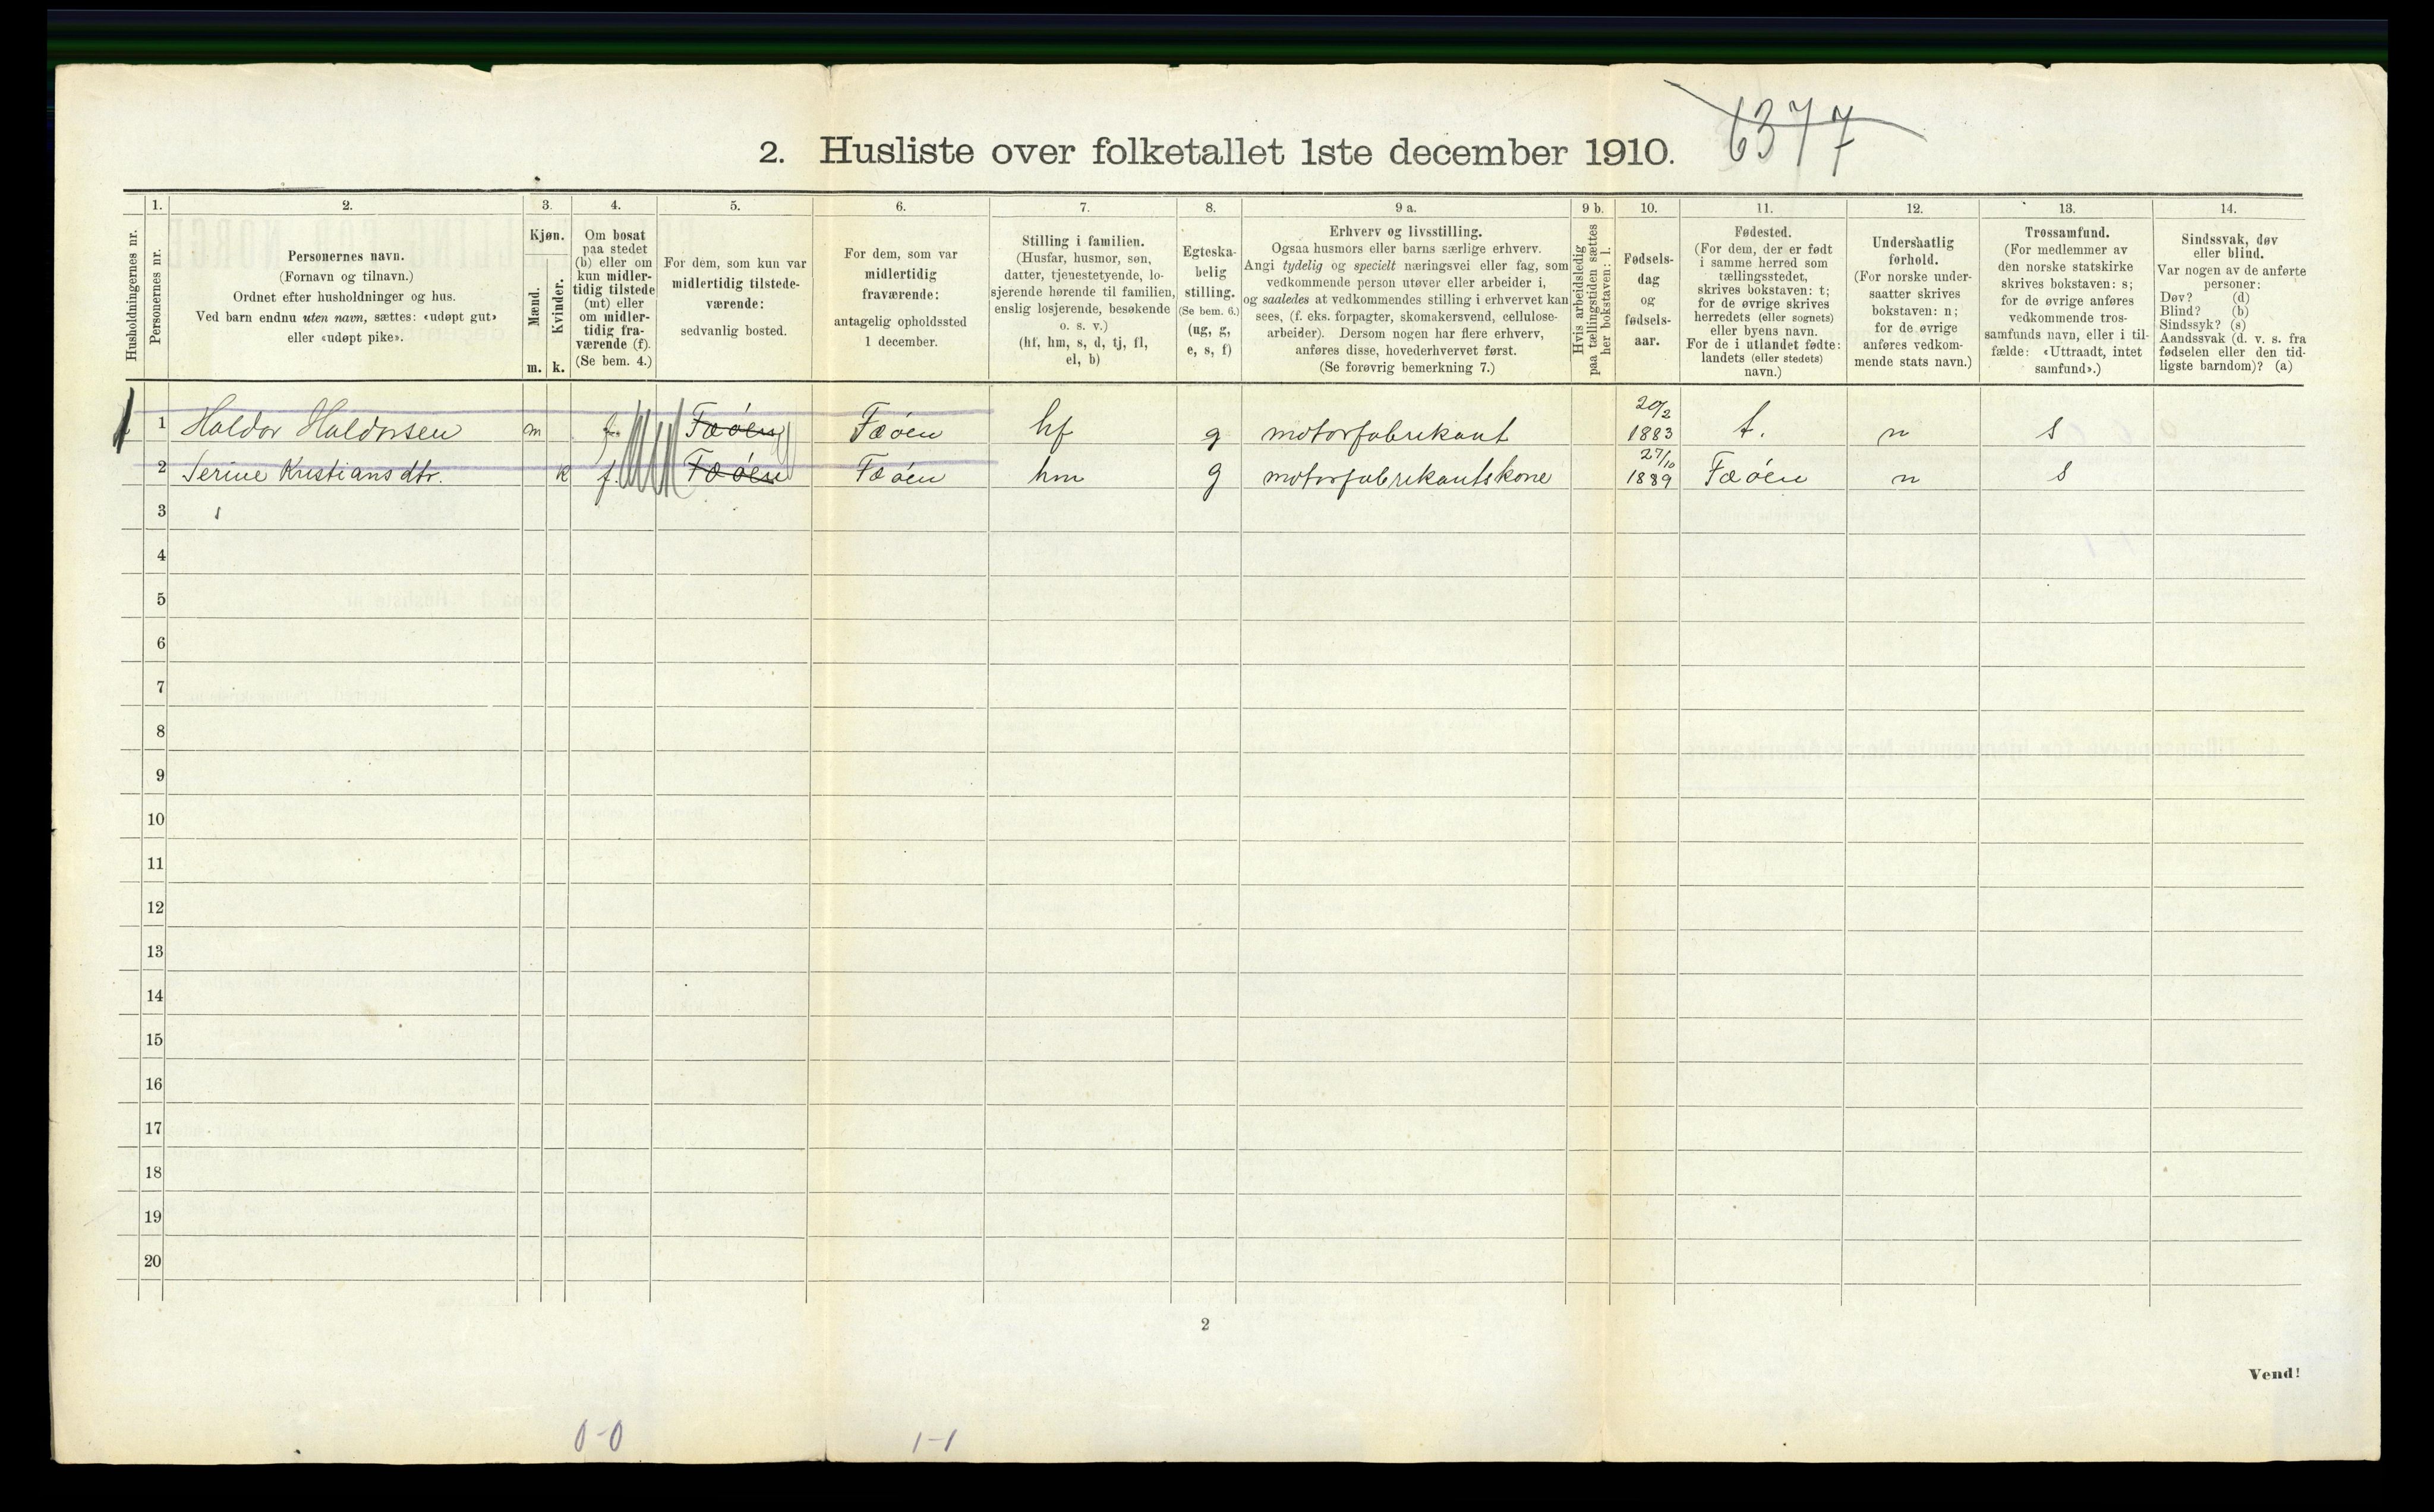 6377
2. Husliste over folketallet 1ste december 1910.
1. 2. 3. 4. 5. 6. 7. 8. 9 a. 9 b. 10. 11. 12. 13. 14.
Husholdningernes nr.
Personernes nr.
Personernes navn.
(Fornavn og tilnavn.)
Ordnet efter husholdninger og hus.
Ved barn endnu uten navn, sættes: «udøpt gut»
eller «udøpt pike».
Kjøn.
Mænd.
Kvinder.
m. k.
Om bosat
paa stedet
(b) eller om
kun midler-
tidig tilstede
(mt) eller
om midler-
tidig fra-
værende (f).
(Se bem. 4.)
For dem, som kun var
midlertidig tilstede-
værende:
sedvanlig bosted.
For dem, som var
midlertidig
fraværende:
antagelig opholdssted
1 december.
Stilling i familien.
(Husfar, husmor, søn,
datter, tjenestetyende, lo-
sjerende hørende til familien,
enslig losjerende, besøkende
o. s. v.)
(hf, hm, s, d, tj, fl,
el, b)
Egteska-
belig
stilling.
(Se bem. 6.)
(ug, g,
e, s, f)
Erhverv og livsstilling.
Ogsaa husmors eller barns særlige erhverv.
Angi tydelig og specielt næringsvei eller fag, som
vedkommende person utøver eller arbeider i,
og saaledes at vedkommendes stilling i erhvervet kan
sees, (f. eks. forpagter, skomakersvend, cellulose-
arbeider). Dersom nogen har flere erhverv,
anføres disse, hovederhvervet først.
(Se forøvrig bemerkning 7.)
Hvis arbeidsledig
paa tællingstiden sættes
her bokstaven: l.
Fødsels-
dag
og
fødsels-
aar.
Fødested.
(For dem, der er født
i samme herred som
tællingsstedet,
skrives bokstaven: t;
for de øvrige skrives
herredets (eller sognets)
eller byens navn.
For de i utlandet fødte:
landets (eller stedets)
navn.)
Undersaatlig
forhold.
(For norske under-
saatter skrives
bokstaven: n;
for de øvrige
anføres vedkom-
mende stats navn.)
Trossamfund.
(For medlemmer av
den norske statskirke
skrives bokstaven: s;
for de øvrige anføres
vedkommende tros-
samfunds navn, eller i til-
fælde: «Uttraadt, intet
samfund».)
Sindssvak, døv
eller blind.
Var nogen av de anførte
personer:
Døv? (d)
Blind? (b)
Sindssyk? (s)
Aandssvak (d. v. s. fra
fødselen eller den tid-
ligste barndom)? (a)
1 Haldor Haldorsen m f. Fæøen Fæøen hf g motorfabrikant 20/2 1883 t. n s
2 Serine Kristiansdtr. k f. Fæøen Fæøen hm g motorfabrikantskone 27/10 1889 Fæøen n s
3
4
5
6
7
8
9
10
11
12
13
14
15
16
17
18
19
20
2
Vend!
0-0 1-1